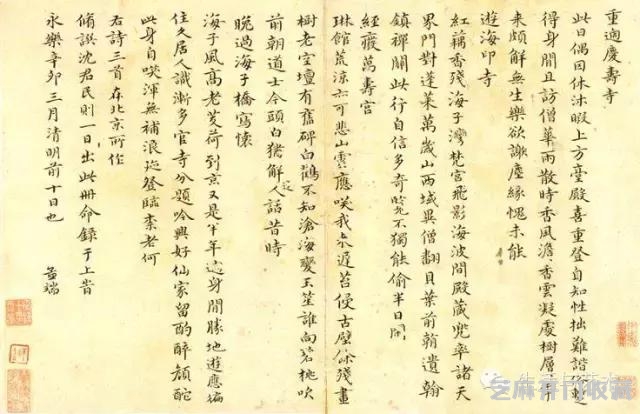 重過慶壽寺
此日偶因休沐暇上方臺殿喜重登自知性拙難諧
得身閒且訪僧華雨散時香風澹香雲凝處樹層
來頗解無生樂欲謝塵緣愧未能
遊海印寺
紅藕香殘海子灣梵宮飛影海波間殿藏兜率諸天
界門對蓬萊萬歲山西域異僧翻貝葉前朝遺翰
鎮禪關此行自信多奇不獨能偷半日閒
經廢萬壽宮
琳館荒涼亦可悲山雲應咲我來遲苔侵古壁餘殘畫
樹老空壇有舊碑白鶴不知滄海變玉笙誰向碧桃吹
前朝道士今頭白猶解人話昔時
晚過海子橋寫懷
海子風高老芰荷到京又是半年過身閒勝地遊應徧
住久居人識漸多官寺分題吟興好仙家留酌醉顏酡
此身自咲渾無補浪迹登臨柰老何
右詩三首在北京所作
脩譔沈君民則一日出此冊命錄于上
永樂辛卯三月清明前十日也 孟端